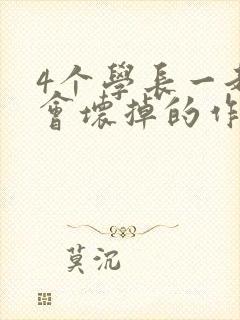 4个學長一
會壞掉的作
莫沉